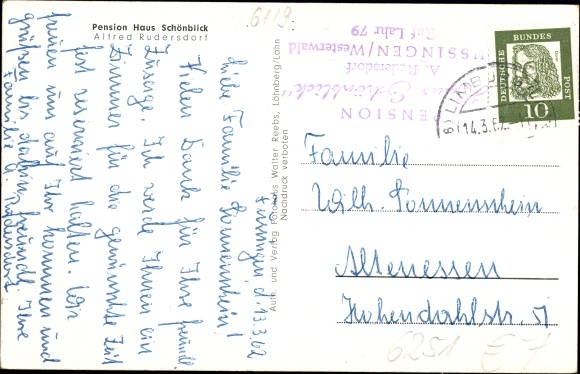 Pension Haus Schönblick
Alfred Rudersdorf
Fussingen, d. 13.3.62
Liebe Familie Sonnenschein!
Vielen Dank für Ihre freundl.
Zusage. Ich werde Ihnen ein
Zimmer für die gewünschte Zeit
fest reserviert halten. Wir
freuen uns auf Ihr kommen und
grüßen bis dahin freundl. Ihre
Familie A. Rudersdorf
Auth. und Verlag Fotohaus Walter Reebs, Löhnberg/Lahn
Nachdruck verboten
6119
PENSION
"Haus Schönblick"
A. Rudersdorf
FUSSINGEN/Westerwald
Ruf Lahr 79
LIMB
14.3.62
DEUTSCHE BUNDES POST
10
Familie
Wilh. Sonnenschein
Altenessen
Hohendahlstr. 51